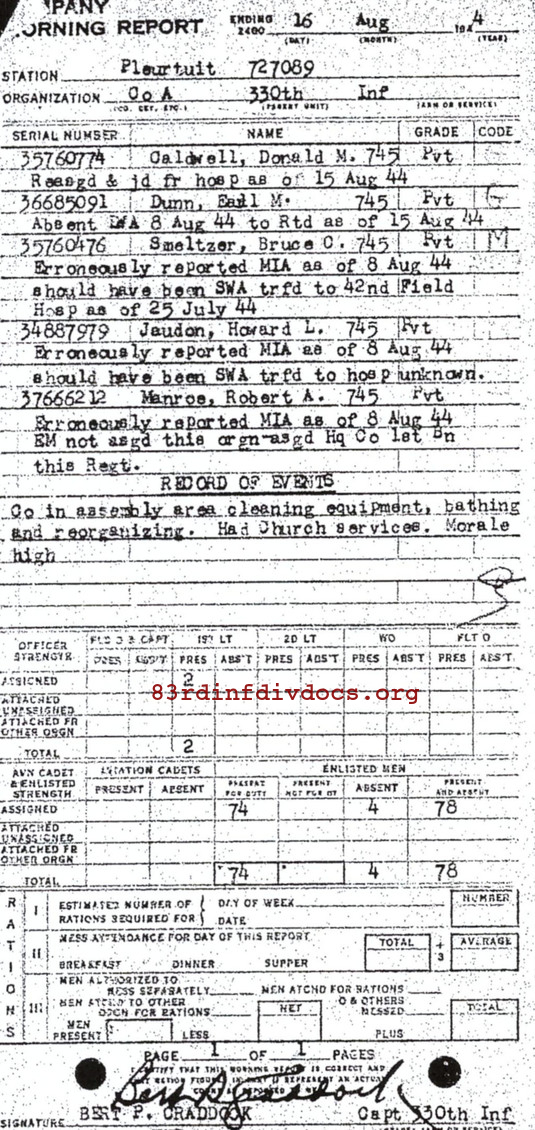 MPANY
ORNING REPORT ENDING 2400 16 Aug 194 4
(DAY) (MONTH) (YEAR)
STATION Pleurtuit 727089
ORGANIZATION Co A 330th Inf
(CO, DET, ETC.) (PARENT UNIT) (ARM OR SERVICE)
SERIAL NUMBER NAME GRADE CODE
35760774 Caldwell, Donald M. 745 Pvt
Reasgd & jd fr hosp as of 15 Aug 44
36685091 Dunn, Earl M. 745 Pvt G
Absent LWA 8 Aug 44 to Rtd as of 15 Aug 44
35760476 Smeltzer, Bruce C. 745 Pvt M
Erroneously reported MIA as of 8 Aug 44
should have been SWA trfd to 42nd Field
Hosp as of 25 July 44
34887979 Jaudon, Howard L. 745 Pvt
Erroneously reported MIA as of 8 Aug 44
should have been SWA trfd to hosp unknown.
37666212 Manroe, Robert A. 745 Pvt
Erroneously reported MIA as of 8 Aug 44
EM not asgd this orgn-asgd Hq Co 1st Bn
this Regt.
RECORD OF EVENTS
Co in assembly area cleaning equipment, bathing
and reorganizing. Had Church services. Morale
high
OFFICER STRENGTH 1ST LT 2D LT WO FLT O
PRES ABS'T PRES ABS'T PRES ABS'T PRES ABS'T PRES ABS'T
ASSIGNED 2
83rdinfdivdocs.org
ATTACHED UNASSIGNED
ATTACHED FR OTHER ORGN
TOTAL 2
AVN CADET & ENLISTED STRENGTH AVIATION CADETS ENLISTED MEN
PRESENT ABSENT PRESENT FOR DUTY PRESENT NOT FOR DY ABSENT PRESENT AND ABSENT
ASSIGNED 74 4 78
ATTACHED UNASSIGNED
ATTACHED FR OTHER ORGN
TOTAL 74 4 78
RATIONS
I ESTIMATED NUMBER OF RATIONS REQUIRED FOR DAY OF WEEK DATE NUMBER
II MESS ATTENDANCE FOR DAY OF THIS REPORT TOTAL ÷ 3 AVERAGE
BREAKFAST DINNER SUPPER
III MEN AUTHORIZED TO MESS SEPARATELY MEN ATCHD FOR RATIONS
MEN ATCHD TO OTHER ORGN FOR RATIONS NET & OTHERS MESSED TOTAL
MEN PRESENT LESS PLUS
PAGE 1 OF 1 PAGES
THAT THIS MORNING REPORT IS CORRECT AND
SIGNATURE BERT P. CRADDOCK Capt 330th Inf